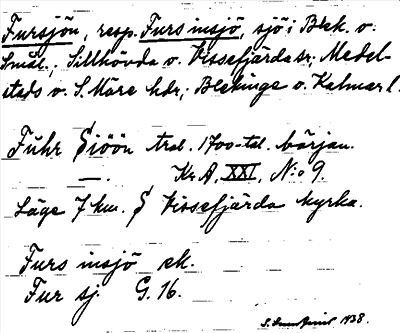 Fursjön, resp. Furs insjö, sjö i Blek. o.
Smål., Sillhövda o. Vissefjärda sr; Medel-
stads o. S. Möre hdr; Blekinge o. Kalmar l.
Fuhr Siöön trol. 1700-tal. början.
—. Kr. A, XXI, N:o 9.
Läge 7 km. S Vissefjärda kyrka.
Furs insjö ek.
Fur sj. G. 16.
1938.